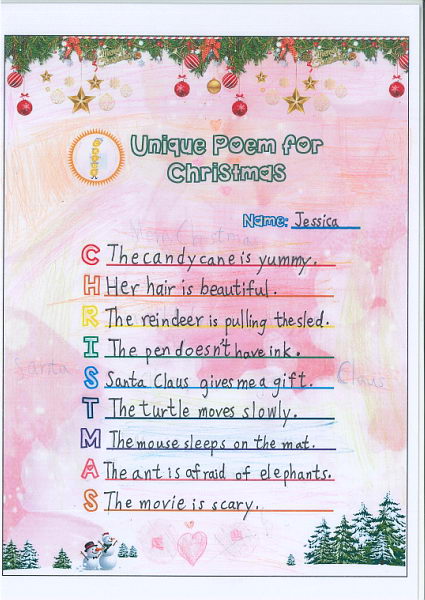 Unique Poem for
Christmas
Name: Jessica
Merry Christmas
C The candy cane is yummy.
H Her hair is beautiful.
R The reindeer is pulling the sled.
I The pen doesn't have ink.
Santa Claus
S Santa Claus gives me a gift.
T The turtle moves slowly.
M The mouse sleeps on the mat.
A The ant is afraid of elephants.
S The movie is scary.